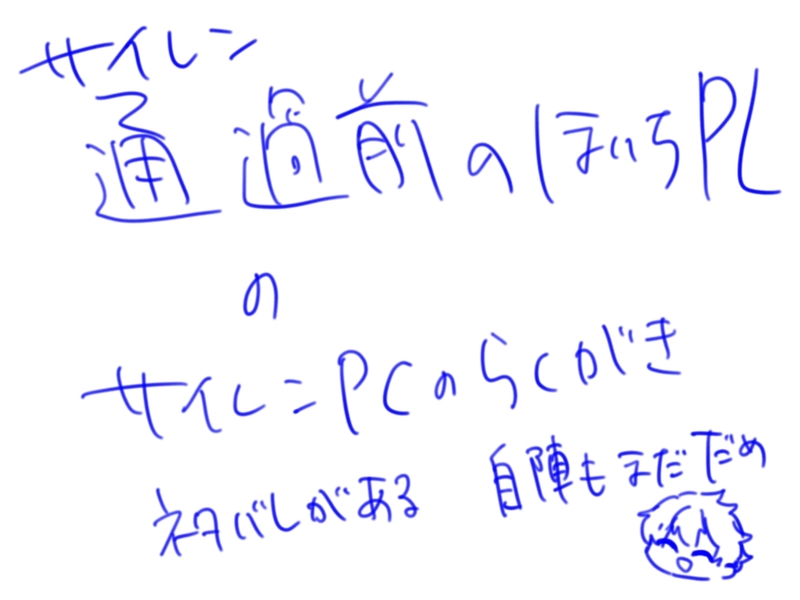 サイレン
通過前のほいちPL
の
サイレンPCのらくがき
ネタバレがある
自陣もまだだめ